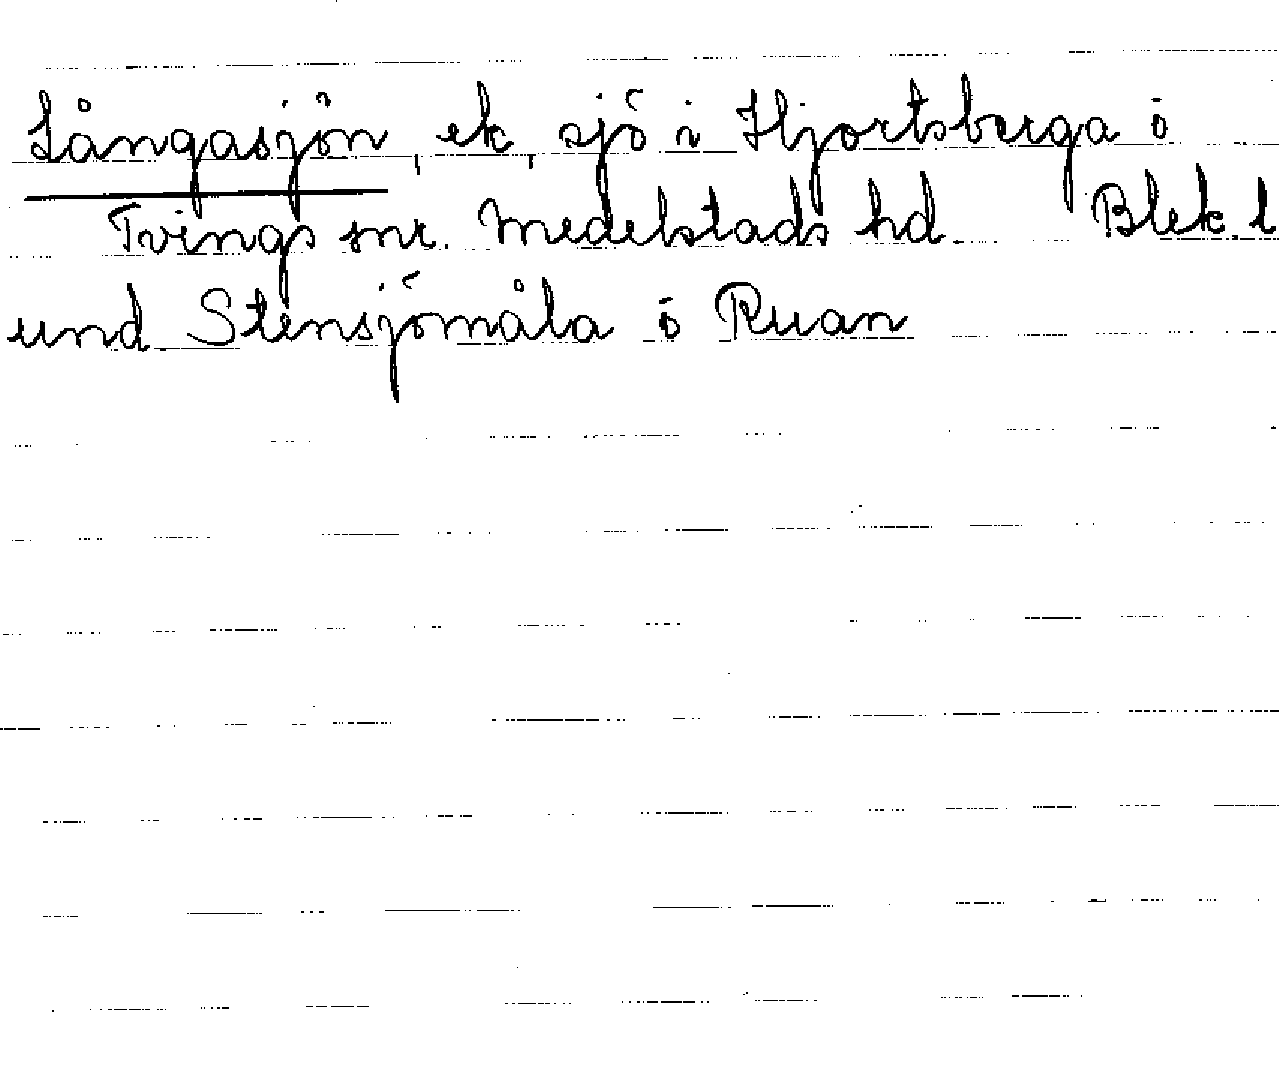 Långasjön, ek, sjö i Hjortsberga o
Tvings snr. Medelstads hd. Blek. l
und Stensjömåla o Ruan